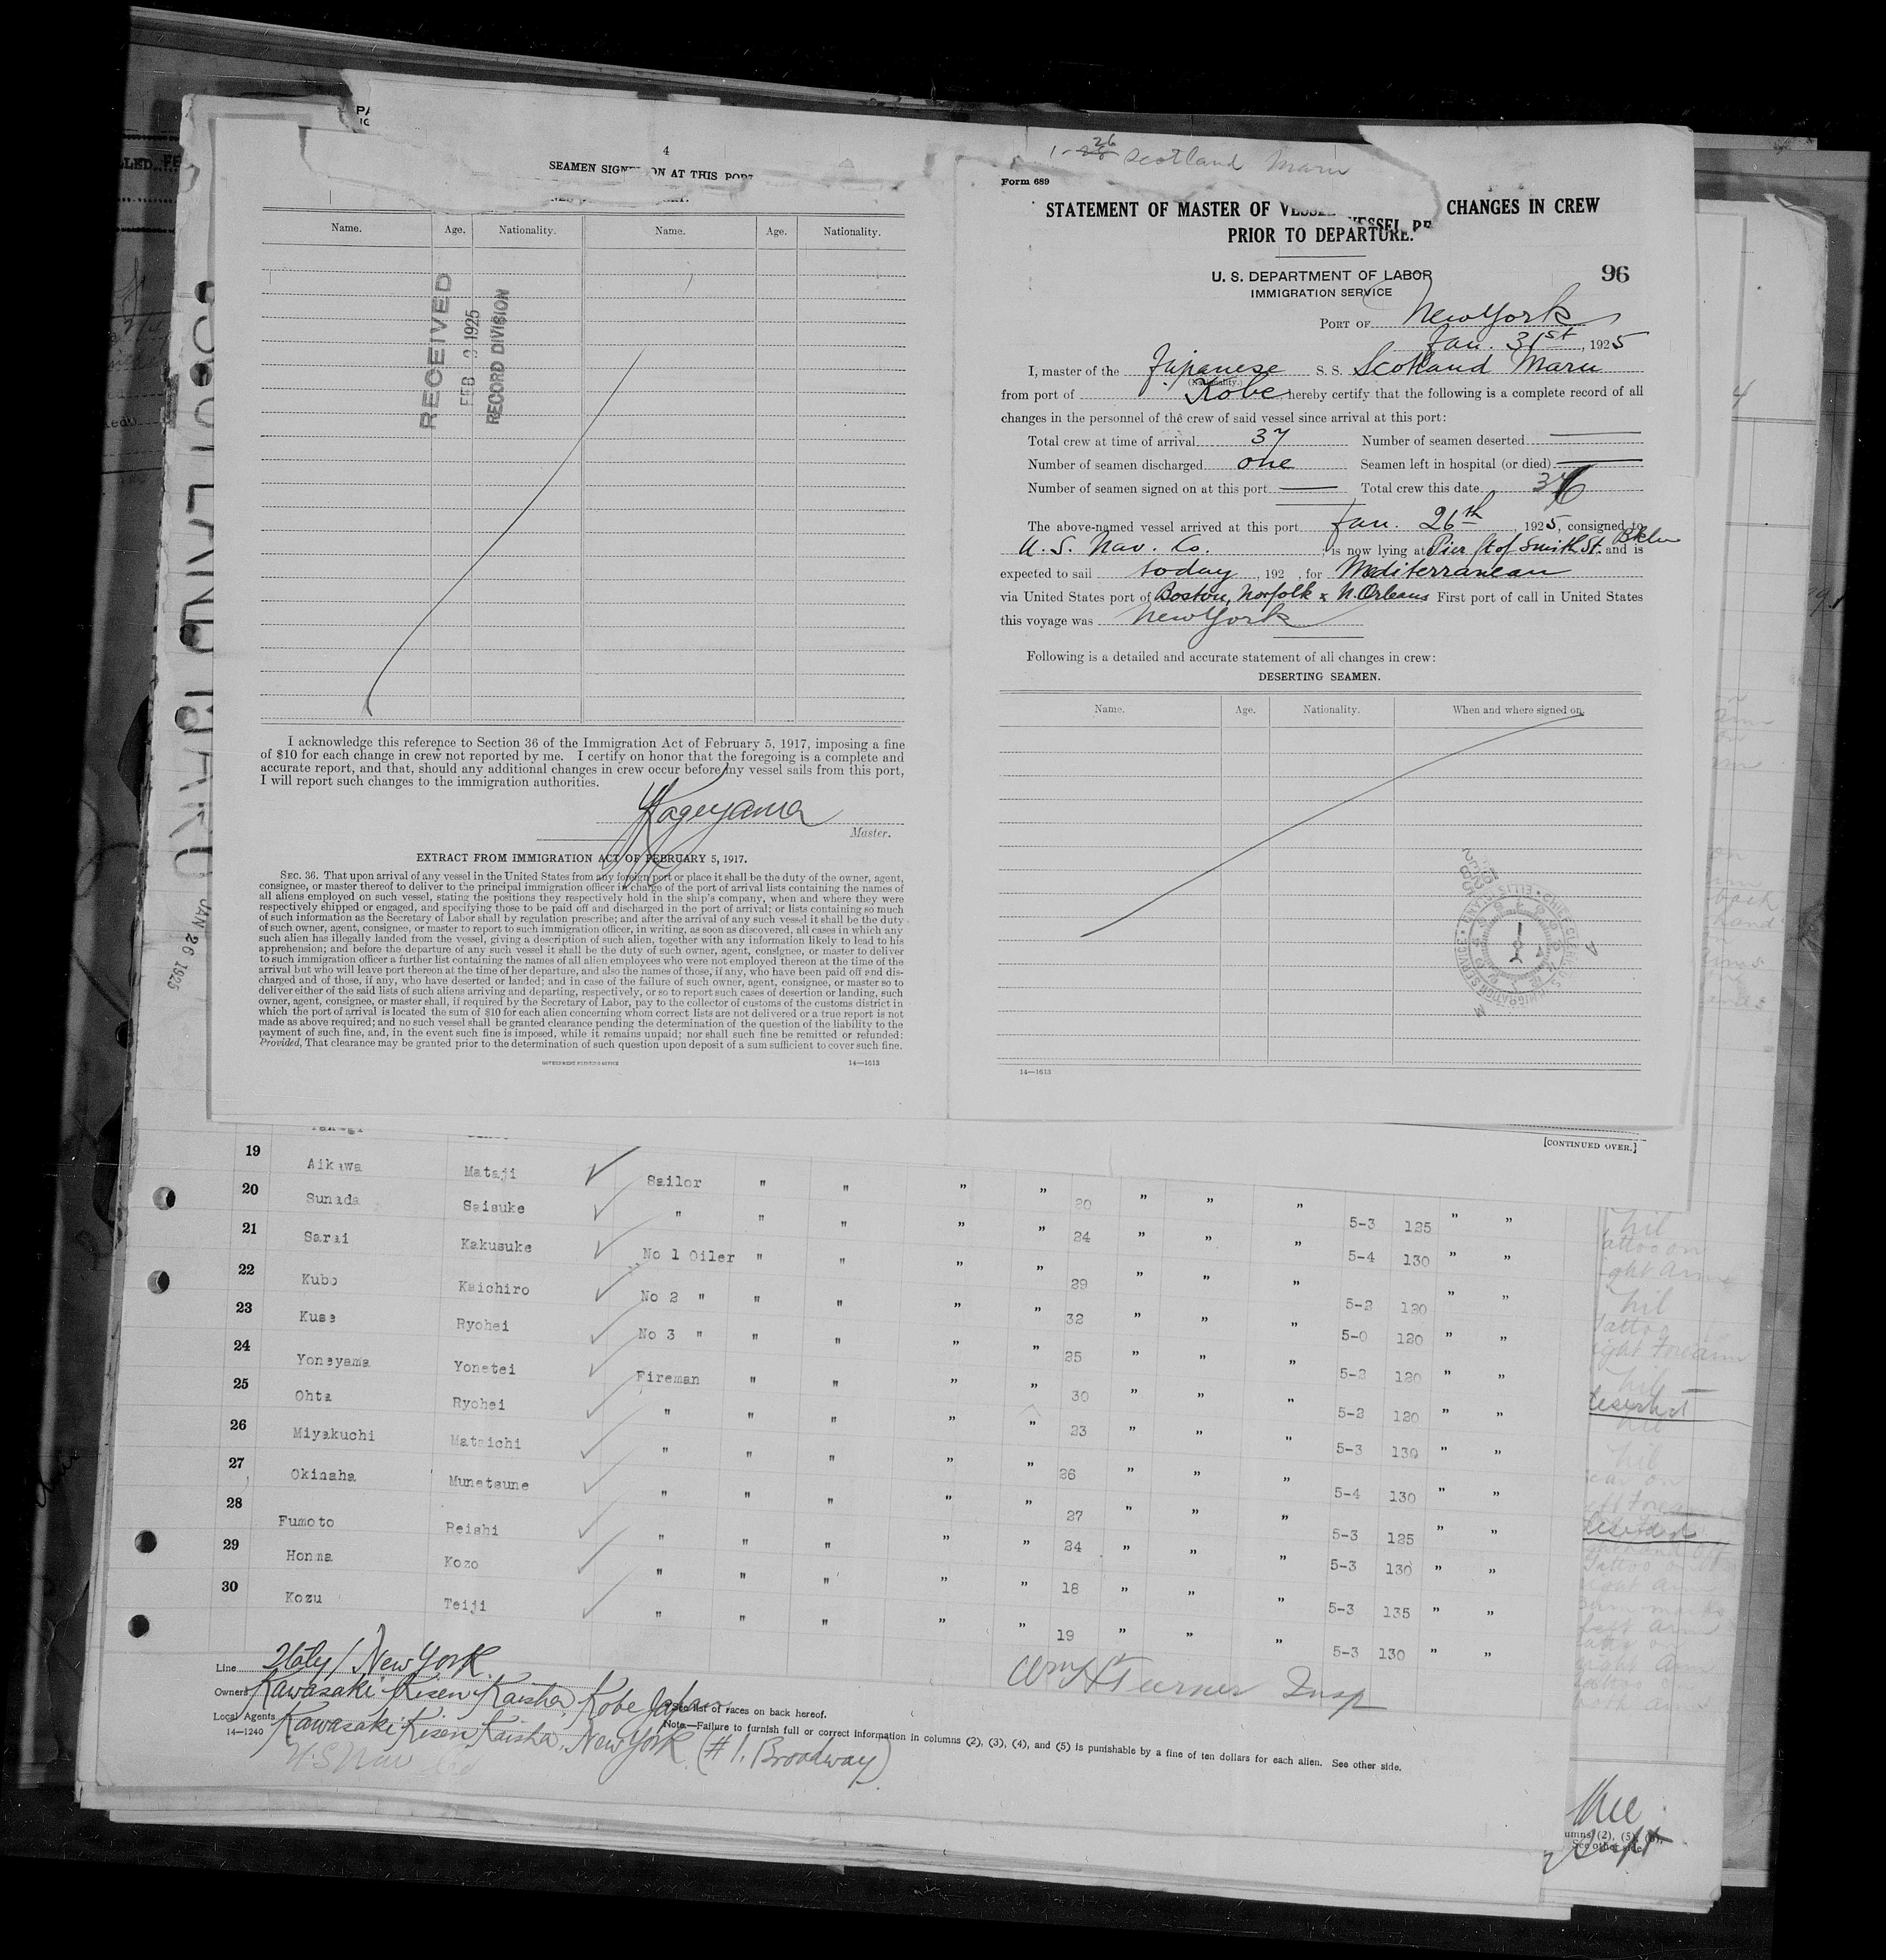 4
SEAMEN SIGN ON AT THIS PORT
Name. Age. Nationality. Name. Age. Nationality.
RECEIVED
FEB 9 1925
RECORD DIVISION
I acknowledge this reference to Section 36 of the Immigration Act of February 5, 1917, imposing a fine
of $10 for each change in crew not reported by me. I certify on honor that the foregoing is a complete and
accurate report, and that, should any additional changes in crew occur before my vessel sails from this port,
I will report such changes to the immigration authorities.
Kageyama
Master.
EXTRACT FROM IMMIGRATION ACT OF FEBRUARY 5, 1917.
SEC. 36. That upon arrival of any vessel in the United States from any foreign port or place it shall be the duty of the owner, agent,
consignee, or master thereof to deliver to the principal immigration officer in charge of the port of arrival lists containing the names of
all aliens employed on such vessel, stating the positions they respectively hold in the ship's company, when and where they were
respectively shipped or engaged, and specifying those to be paid off and discharged in the port of arrival; or lists containing so much
of such information as the Secretary of Labor shall by regulation prescribe; and after the arrival of any such vessel it shall be the duty
of such owner, agent, consignee, or master to report to such immigration officer, in writing, as soon as discovered, all cases in which any
such alien has illegally landed from the vessel, giving a description of such alien, together with any information likely to lead to his
apprehension; and before the departure of any such vessel it shall be the duty of such owner, agent, consignee, or master to deliver
to such immigration officer a further list containing the names of all alien employees who were not employed thereon at the time of the
arrival but who will leave port thereon at the time of her departure, and also the names of those, if any, who have been paid off and dis-
charged and of those, if any, who have deserted or landed; and in case of the failure of such owner, agent, consignee, or master so to
deliver either of the said lists of such aliens arriving and departing, respectively, or so to report such cases of desertion or landing, such
owner, agent, consignee, or master shall, if required by the Secretary of Labor, pay to the collector of customs of the customs district in
which the port of arrival is located the sum of $10 for each alien concerning whom correct lists are not delivered or a true report is not
made as above required; and no such vessel shall be granted clearance pending the determination of the question of the liability to the
payment of such fine, and, in the event such fine is imposed, while it remains unpaid; nor shall such fine be remitted or refunded:
Provided, That clearance may be granted prior to the determination of such question upon deposit of a sum sufficient to cover such fine.
GOVERNMENT PRINTING OFFICE 14—1613
SCOTLAND MARU
JAN 26 1925
1-26 Scotland Maru
Form 689
STATEMENT OF MASTER OF VESSEL CHANGES IN CREW
PRIOR TO DEPARTURE.
U. S. DEPARTMENT OF LABOR
IMMIGRATION SERVICE
96
PORT OF New York
Jan. 31st, 1925
I, master of the Japanese S. S. Scotland Maru
(Nationality.)
from port of Kobe hereby certify that the following is a complete record of all
changes in the personnel of the crew of said vessel since arrival at this port:
Total crew at time of arrival 37 Number of seamen deserted
Number of seamen discharged one Seamen left in hospital (or died)
Number of seamen signed on at this port Total crew this date 36
The above-named vessel arrived at this port Jan. 26th, 1925, consigned to
U. S. Nav. Co. is now lying at Pier ft of Smith St. Bkln and is
expected to sail today, 192 , for Mediterranean
via United States port of Boston, Norfolk & N. Orleans First port of call in United States
this voyage was New York
Following is a detailed and accurate statement of all changes in crew:
DESERTING SEAMEN.
Name. Age. Nationality. When and where signed on.
14—1613
[CONTINUED OVER.]
19 Aikawa Mataji Sailor " " " " 20 " " " 5-3 125 " "
20 Sunada Saisuke " " " " " 24 " " " 5-4 130 " "
21 Sarai Kakusuke No 1 Oiler " " " " 29 " " " 5-2 120 " "
22 Kubo Kaichiro No 2 " " " " " 32 " " " 5-0 120 " "
23 Kuse Ryohei No 3 " " " " " 25 " " " 5-2 120 " "
24 Yoneyama Yonetei Fireman " " " " 30 " " " 5-2 120 " "
25 Ohta Ryohei " " " " " 23 " " " 5-3 130 " "
26 Miyakuchi Mataichi " " " " " 26 " " " 5-4 130 " "
27 Okinaha Munetsune " " " " " 27 " " " 5-3 125 " "
28 Fumoto Reishi " " " " " 24 " " " 5-3 130 " "
29 Honma Kozo " " " " " 18 " " " 5-3 135 " "
30 Kozu Teiji " " " " " 19 " " " 5-3 130 " "
Line Italy / New York.
Owners Kawasaki Kisen Kaisha, Kobe Japan
Local Agents Kawasaki Kisen Kaisha, New York (#1, Broadway)
14—1240
U.S Nav
Wm H Turner Insp
See list of races on back hereof.
Note.—Failure to furnish full or correct information in columns (2), (3), (4), and (5) is punishable by a fine of ten dollars for each alien. See other side.